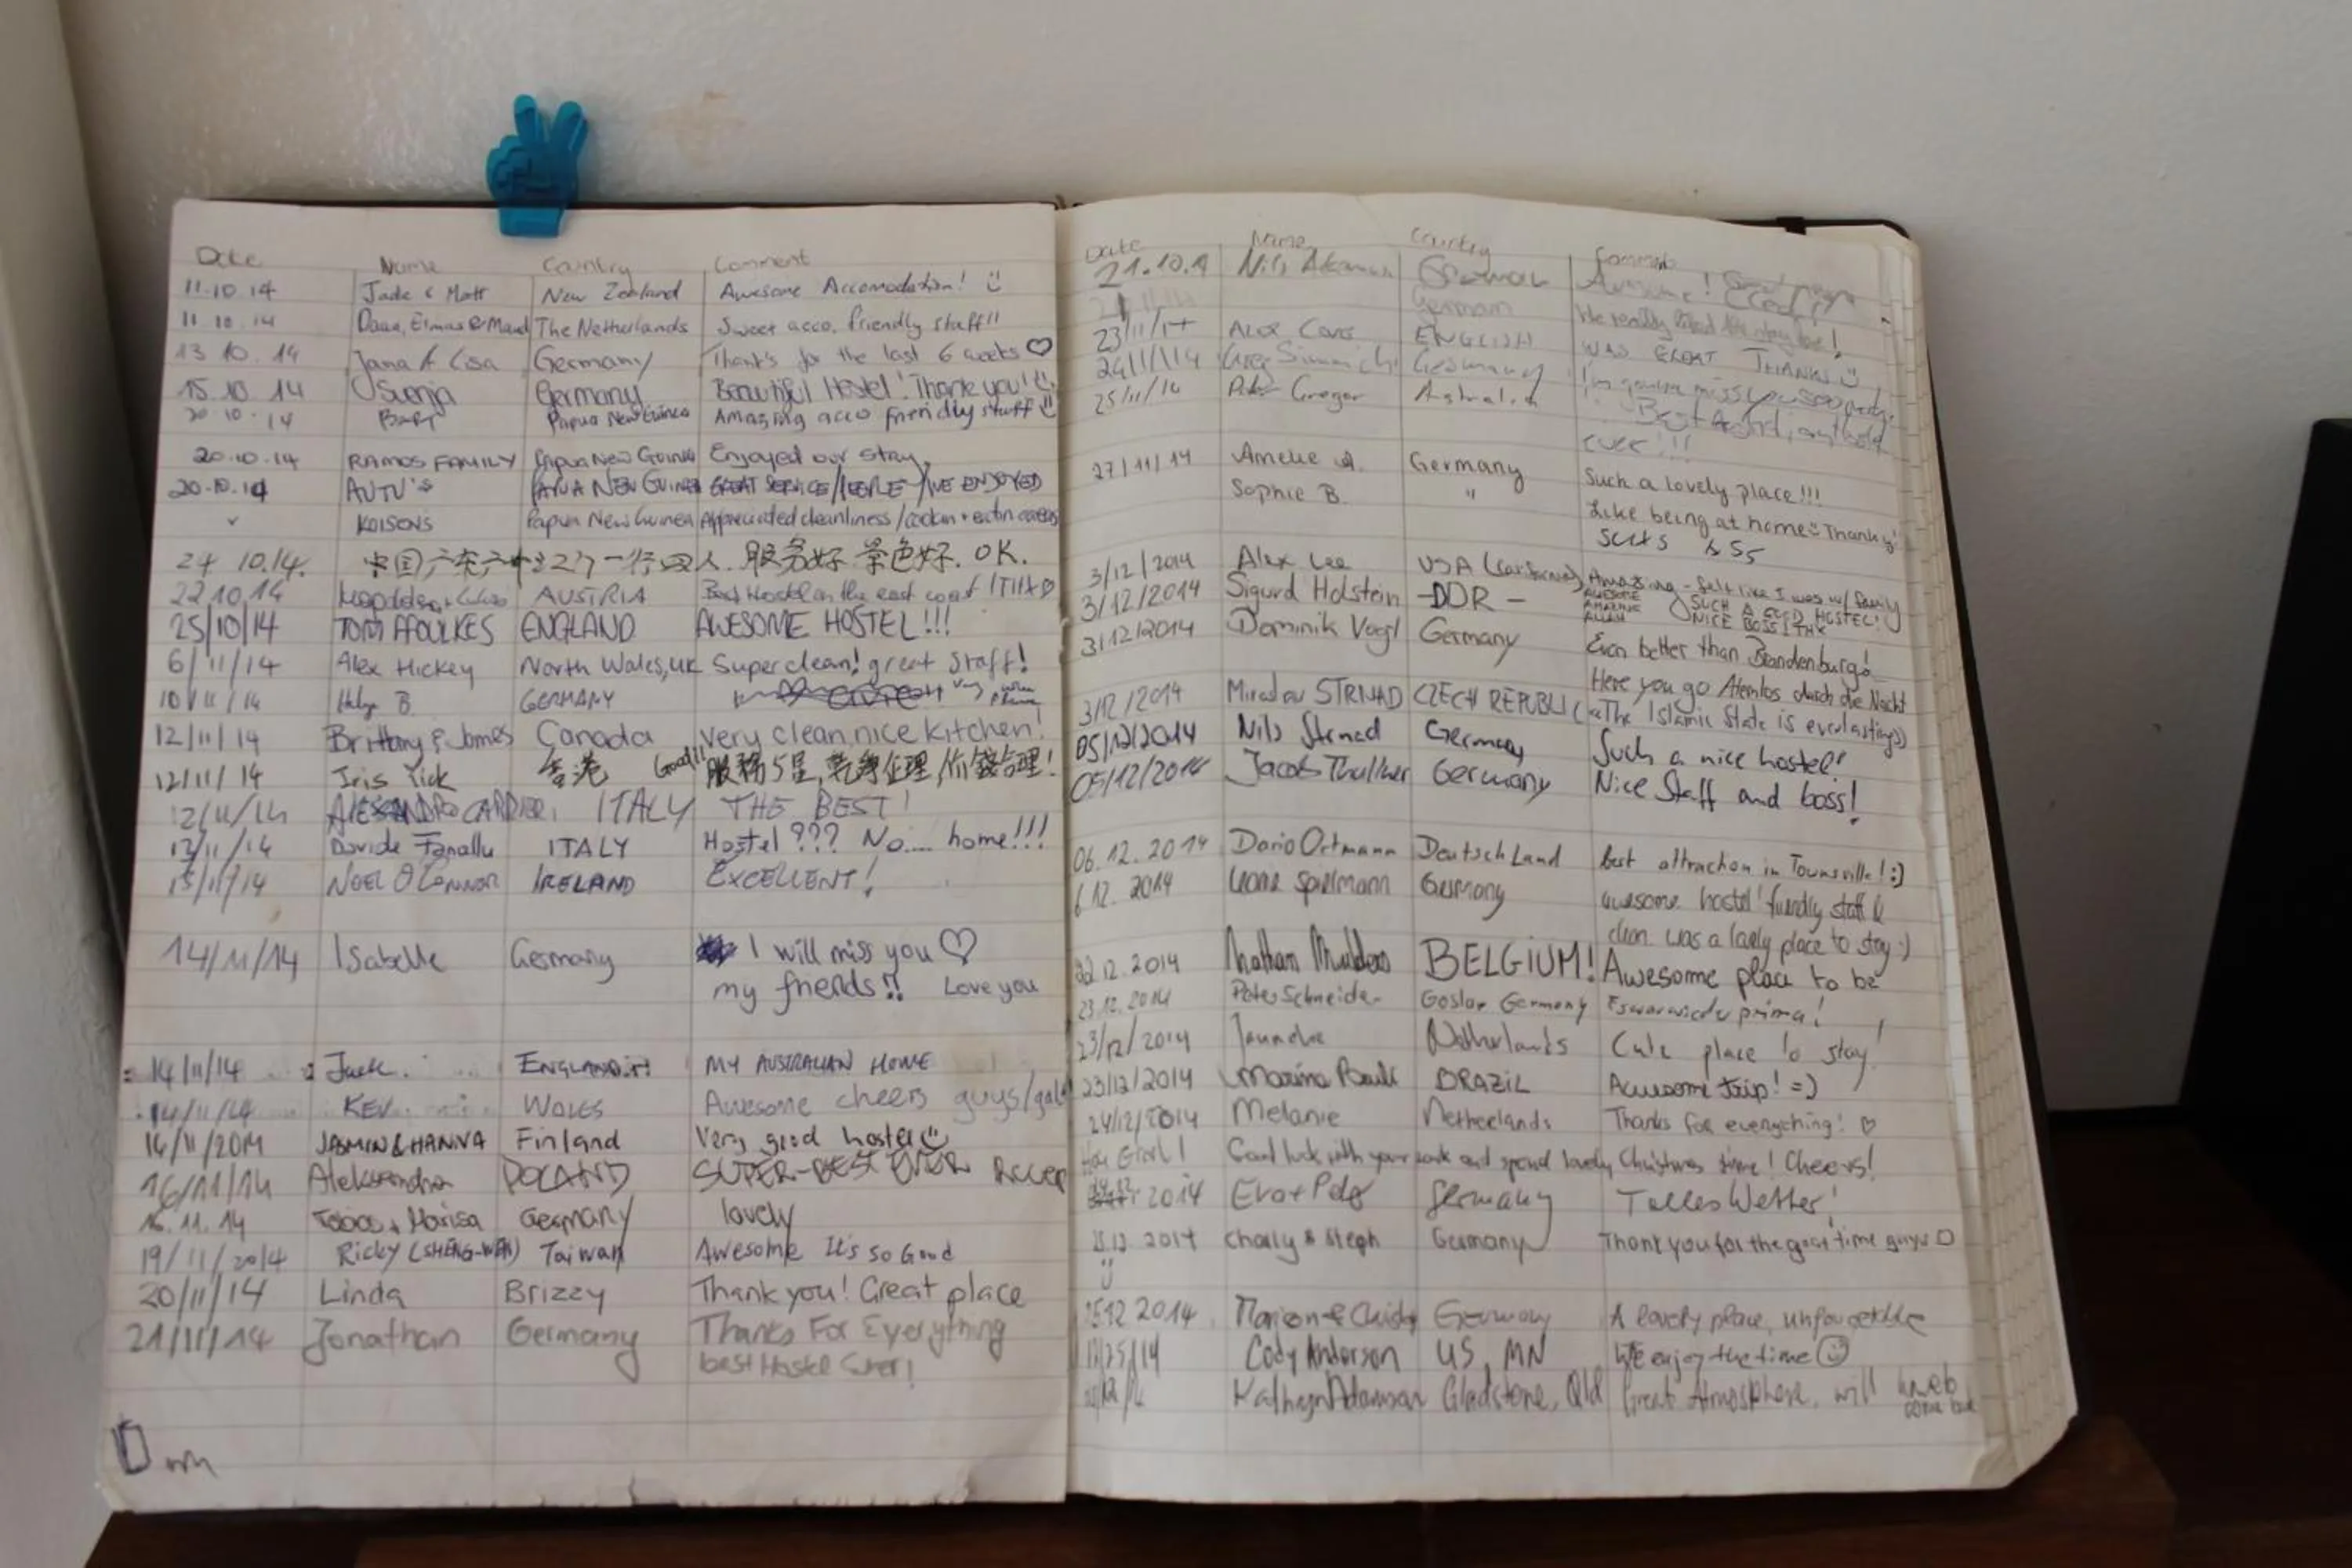 Date Name Country Comment
11.10.14 Jade & Matt New Zealand Awesome Accomodation!
11.10.14 Daan, Elmas & Maud The Netherlands Sweet acco, friendly staff!!
13.10.14 Jana & Lisa Germany Thank's for the last 6 weeks ♡
15.10.14 Svenja Germany Beautiful Hostel! Thank you!
20.10.14 BART Papua New Guinea Amazing acco friendly stuff
20.10.14 RAMOS FAMILY Papua New Guinea Enjoyed our stay.
20.10.14 AUTU'S PAPUA NEW GUINEA GREAT SERVICE/PEOPLE/WE ENJOYED
KOISONS Papua New Guinea Appreciated cleanliness /
24 10.14. 中国广东 一行四人. 服务好 景色好. OK.
22.10.14 AUSTRIA Best Hostel on the east coast
25/10/14 TOM FFOULKES ENGLAND AWESOME HOSTEL!!!
6/11/14 Alex Hickey North Wales, UK Super clean! great staff!
10/11/14 B. GERMANY
12/11/14 Brittany & James Canada very clean, nice kitchen!
12/11/14 Iris Yick 香港 Good!! 服務5星, 價錢合理!
12/11/14 ITALY THE BEST!
13/11/14 Davide ITALY Hostel??? No.... home!!!
15/11/14 NOEL O'CONNOR IRELAND EXCELLENT!
14/11/14 Isabelle Germany I will miss you ♡
my friends!! Love you
14/11/14 Jack. ENGLAND MY AUSTRALIAN HOME
14/11/14 KEV WALES Awesome cheers guys/gals
16/11/2014 JASMIN & HANNA Finland Very good hostel
16/11/14 Aleksandra POLAND SUPER-BEST EVER
16.11.14 Marisa Germany lovely
19/11/2014 Ricky (SHENG-WEN) Taiwan Awesome It's so Good
20/11/14 Linda Brizzy Thank you! Great place
21/11/14 Jonathan Germany Thanks For Everything
best Hostel Ever!
Date Name Country Comment
21.10.14 Nils Awesome!
German We really liked
23/11/14 Alex ENGLISH WAS GREAT THANKS
24/11/14 Germany I'm gonna miss you
25/11/14 Gregor Australia Best
ever!!!
27/11/14 Amelie A. Germany Such a lovely place!!!
Sophie B. " Like being at home Thanks!
3/12/2014 Alex Lee USA (California) Amazing - felt like I was w/ family
3/12/2014 Sigurd Holstein -DDR- AWESOME SUCH A GOOD HOSTEL!
AMAZING NICE BOSS! THX
ALLAH
3/12/2014 Dominik Vogl Germany Even better than Brandenburg!
Here you go Atemlos durch die Nacht
3/12/2014 Miroslav STRNAD CZECH REPUBLIC The Islamic State is everlasting
05/12/2014 Nils Germany Such a nice hostel!
05/12/2014 Jacob Germany Nice Staff and boss!
06.12.2014 Dario Ortmann Deutschland best attraction in Townsville! :)
6.12.2014 Spielmann Germany awesome hostel! friendly staff &
clean. was a lovely place to stay :)
22.12.2014 BELGIUM! Awesome place to be
23.12.2014 Peter Schneider Goslar Germany Es war wieder prima!
23/12/2014 Netherlands Cute place to stay!
23/12/2014 Marina BRAZIL Awesome trip! =)
24/12/2014 Melanie Netherlands Thanks for everything! ♡
Good luck with your work and spend lovely Christmas time! Cheers!
2014 Eva + Germany Tolles Wetter!
2014 Charly & Steph Germany Thank you for the great time guys
25.12.2014 Marion & Germany A lovely place, unforgettable
12/25/14 Cody Anderson US, MN We enjoy the time
Kathryn Adamson Gladstone, Qld Great Atmosphere, will
come back